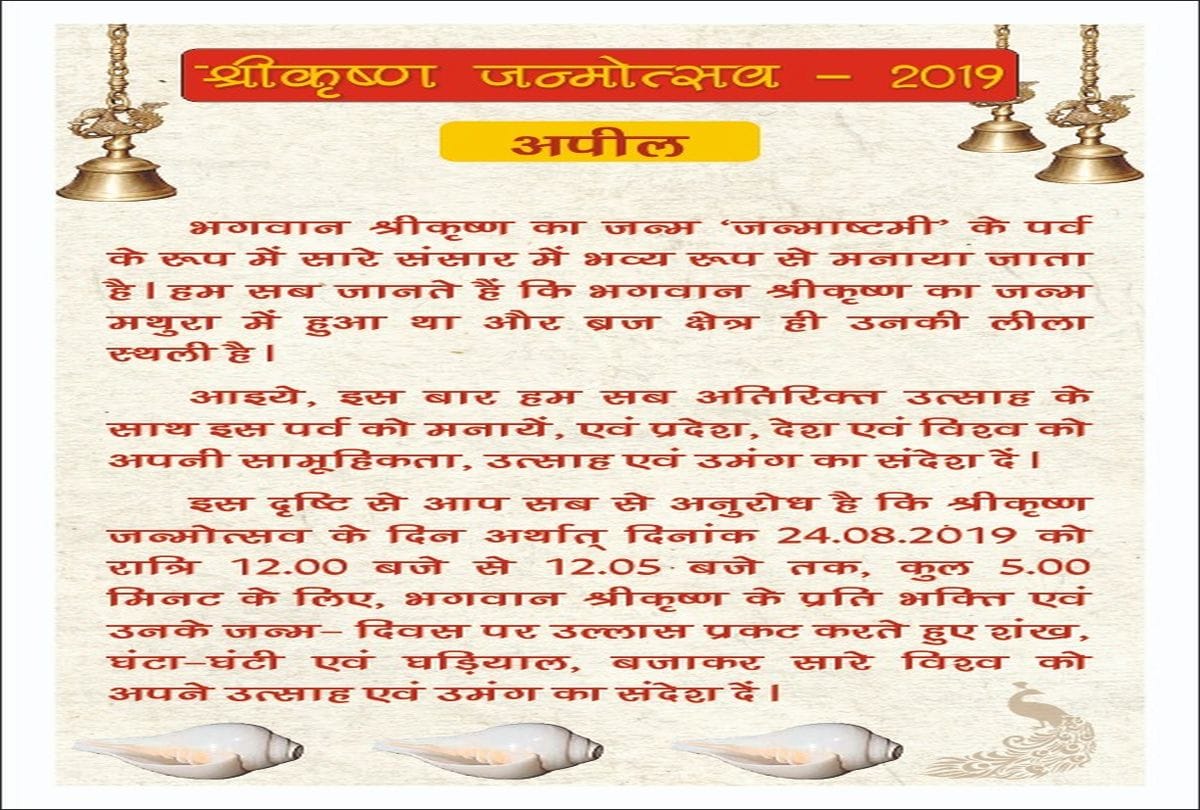 श्रीकृष्ण जन्मोत्सव – 2019
अपील
भगवान श्रीकृष्ण का जन्म ‘जन्माष्टमी’ के पर्व
के रूप में सारे संसार में भव्य रूप से मनाया जाता
है। हम सब जानते हैं कि भगवान श्रीकृष्ण का जन्म
मथुरा में हुआ था और ब्रज क्षेत्र ही उनकी लीला
स्थली है।
आइये, इस बार हम सब अतिरिक्त उत्साह के
साथ इस पर्व को मनायें, एवं प्रदेश, देश एवं विश्व को
अपनी सामूहिकता, उत्साह एवं उमंग का संदेश दें।
इस दृष्टि से आप सब से अनुरोध है कि श्रीकृष्ण
जन्मोत्सव के दिन अर्थात् दिनांक 24.08.2019 को
रात्रि 12.00 बजे से 12.05 बजे तक, कुल 5.00
मिनट के लिए, भगवान श्रीकृष्ण के प्रति भक्ति एवं
उनके जन्म– दिवस पर उल्लास प्रकट करते हुए शंख,
घंटा–घंटी एवं घड़ियाल, बजाकर सारे विश्व को
अपने उत्साह एवं उमंग का संदेश दें।